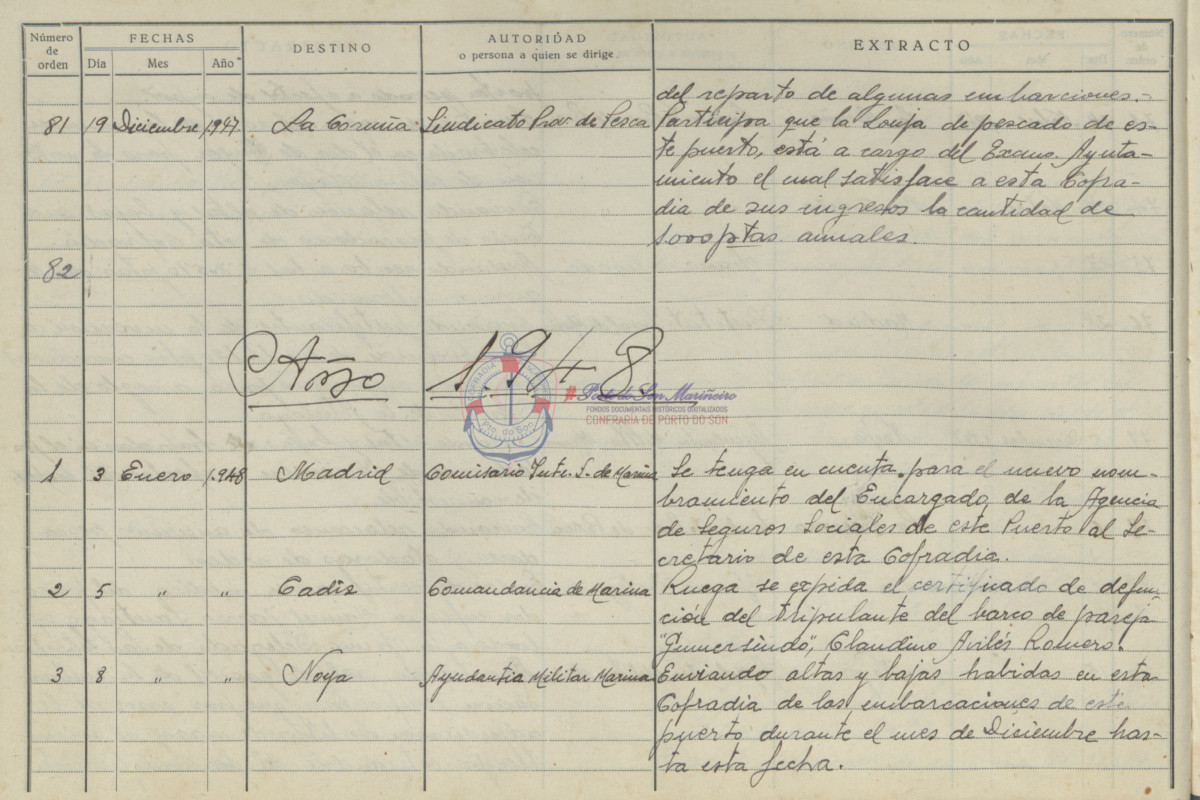 Número de orden
FECHAS
Día Mes Año
DESTINO
AUTORIDAD
o persona a quien se dirige.
EXTRACTO
del reparto de algunas embarciones.-
81 19 Diciembre 1.947. La Coruña Sindicato Prov. de Pesca Participa que la Lonja de pescado de es-
te puerto, está a cargo del Excmo. Ayunta-
miento el cual satisface a esta Cofra-
dia de sus ingresos la cantidad de
5.000 ptas. anuales.
82
Año 1948
COFRADIA
Pto. do Son
# Porto do Son Mariñeiro
FONDOS DOCUMENTAIS HISTÓRICOS DIXITALIZADOS
CONFRARÍA DE PORTO DO SON
1 3 Enero 1.948 Madrid Comisario S. de Marina Se tenga en cuenta para el nuevo nom-
bramiento del Encargado de la Agencia
de Seguros Sociales de este Puerto al Se-
cretario de esta Cofradia.
2 5 " " Cadiz Comandancia de Marina Ruega se expida el certificado de defun-
ción del tripulante del barco de pareja
"Gumersindo", Claudino Avilés Romero.
3 8 " " Noya Ayudantia Militar Marina Enviando altas y bajas habidas en esta
Cofradia de las embarcaciones de este
puerto durante el mes de Diciembre has-
ta esta fecha.